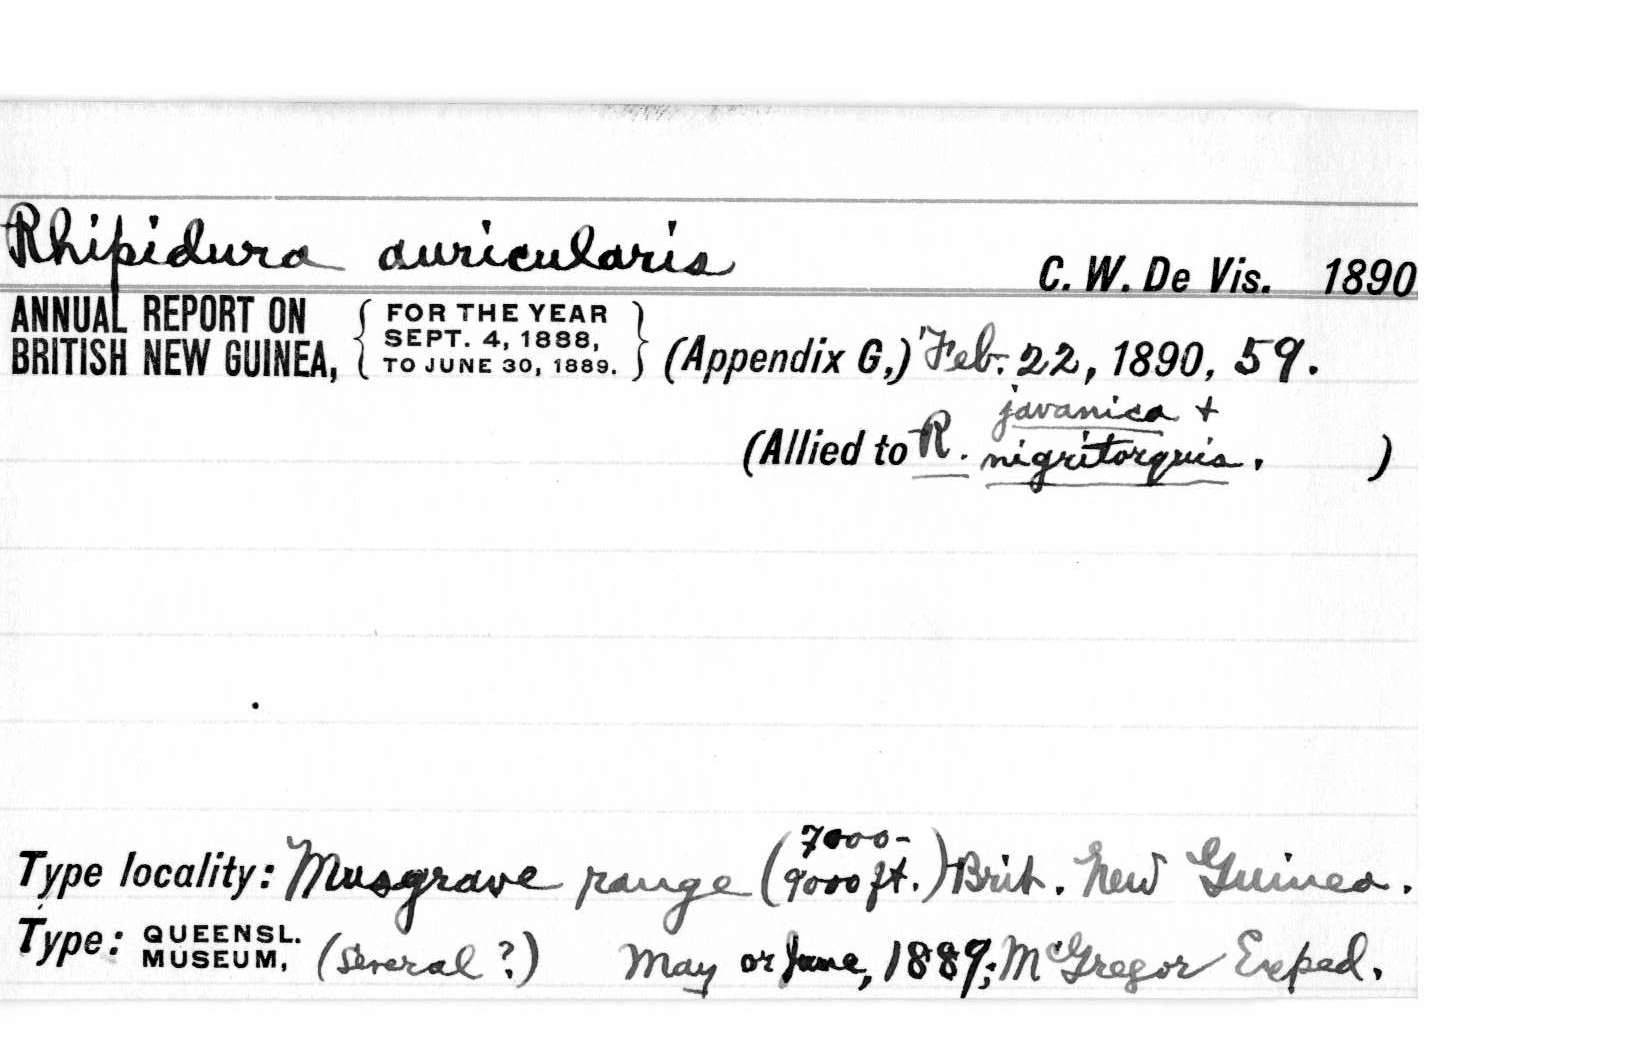 Rhipidura auricularis C. W. De Vis. 1890
ANNUAL REPORT ON BRITISH NEW GUINEA, { FOR THE YEAR SEPT. 4, 1888, TO JUNE 30, 1889. } (Appendix G,) Feb. 22, 1890, 59.
(Allied to R. javanica + nigritorquis. )
Type locality: Musgrave range (7000-9000 ft.) Brit. New Guinea.
Type: QUEENSL. MUSEUM, (several ?) May or June, 1889; McGregor Exped.